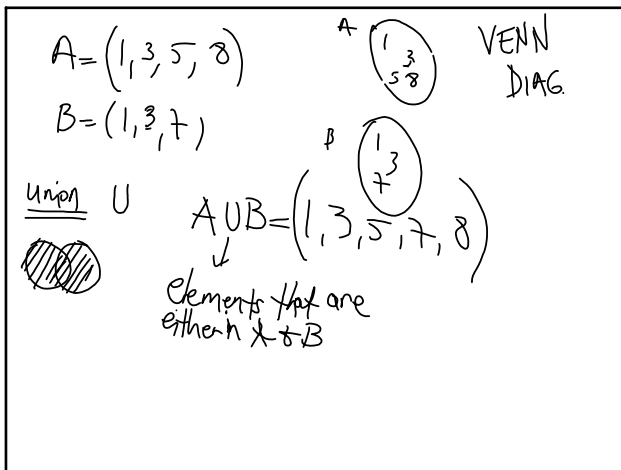 A=(1,3,5,8)
B=(1,3,7)
A
1
3
5 8
VENN
DIAG.
B
1
3
7
Union U
A∪B=(1,3,5,7,8)
elements that are
either in A or B